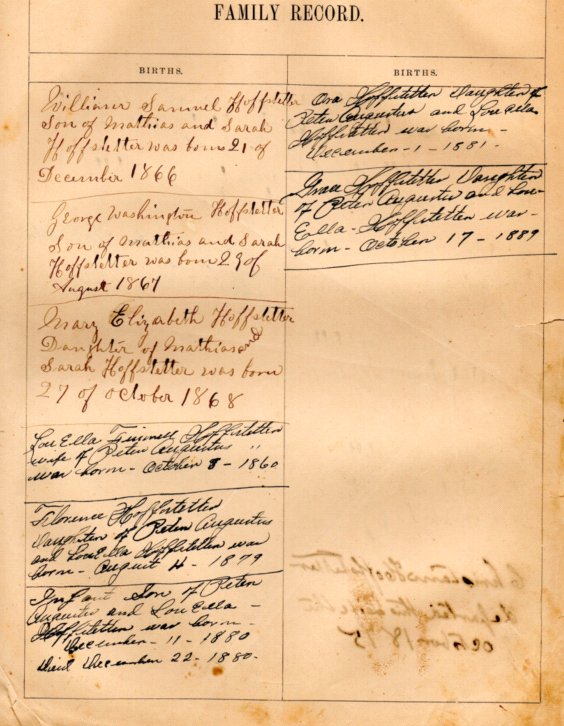 FAMILY RECORD.
BIRTHS.
William Samuel Hoffstetter
Son of Mathias and Sarah
Hoffstetter was born 21 of
December 1866
George Washington Hoffstetter
Son of Mathias and Sarah
Hoffstetter was born 23 of
August 1867
Mary Elizabeth Hoffstetter
Daughter of Mathias and
Sarah Hoffstetter was born
27 of October 1868
Lou Ella Hoffstetter
wife of Peter Augustus "
was born - October 8 - 1860
Florence Hoffstetter
Daughter of Peter Augustus
and Lou Ella Hoffstetter was
born - August 4 - 1879
Infant Son of Peter
Augustus and Lou Ella -
Hoffstetter was born -
December - 11 - 1880
Died December 22 - 1880 -
BIRTHS.
Ora Hoffstetter Daughter of
Peter Augustus and Lou Ella
Hoffstetter was born -
December - 1 - 1881 -
Grace Hoffstetter Daughter
of Peter Augustus and Lou -
Ella - Hoffstetter was -
born - October 17 - 1889